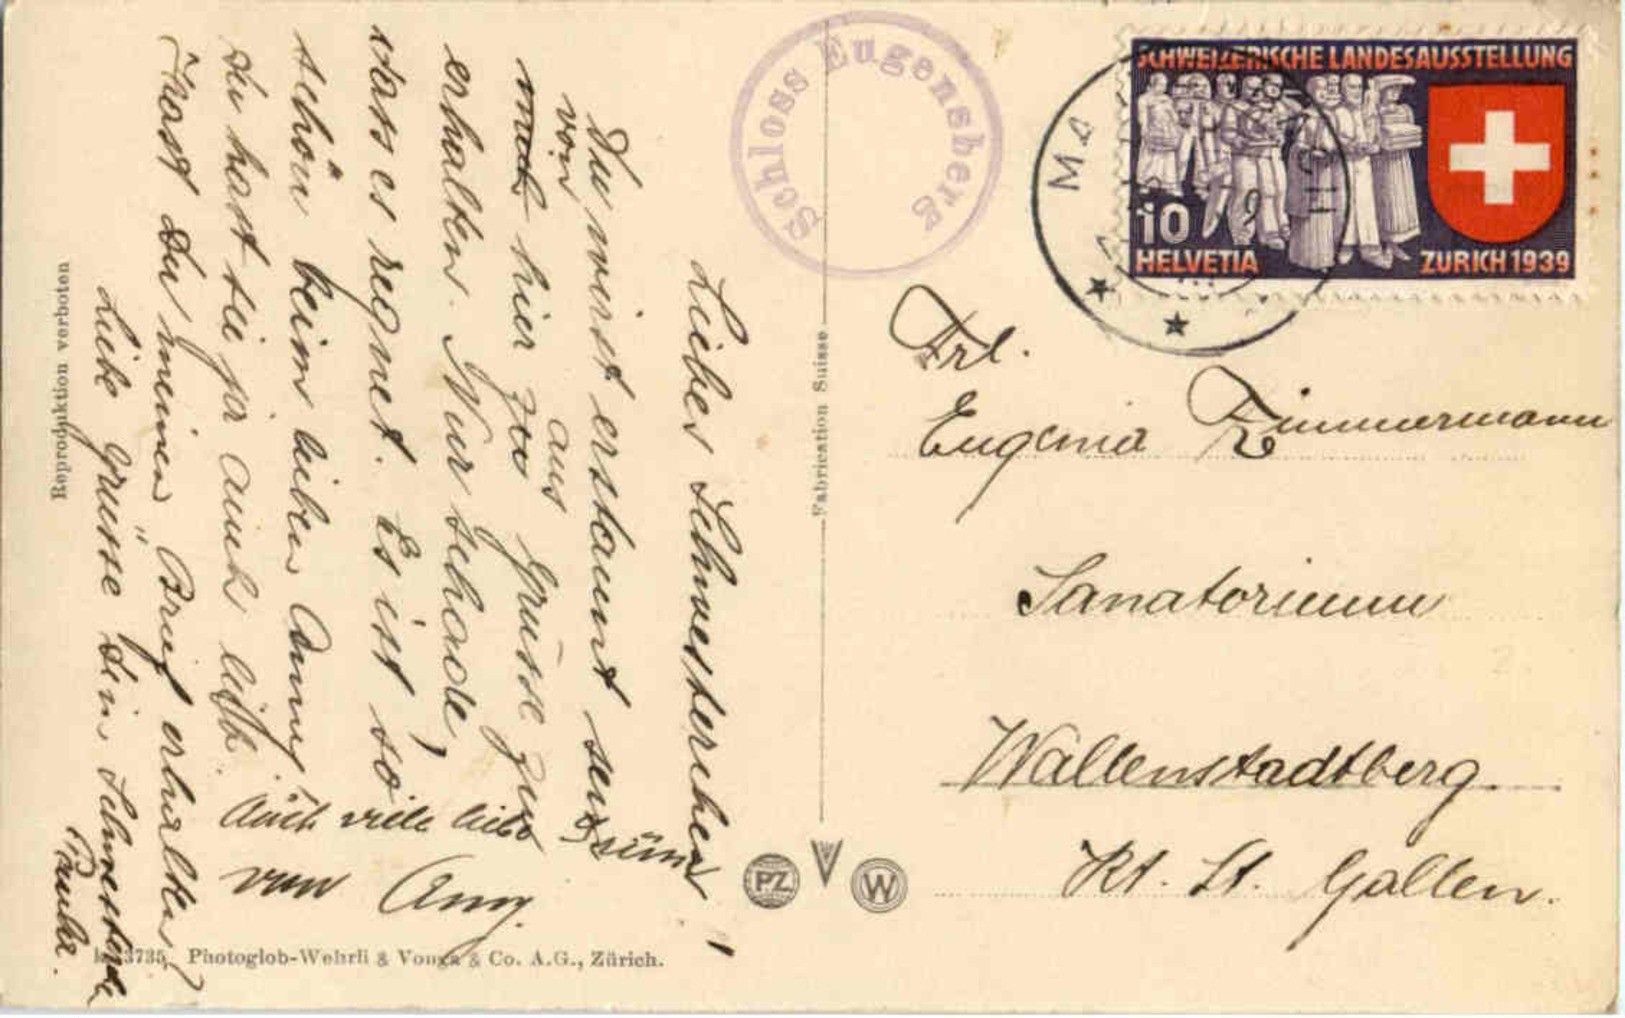 Schloss Eugensberg
SCHWEIZERISCHE LANDESAUSSTELLUNG
10
HELVETIA
ZURICH 1939
Liebes Schwesterchen!
Du wirst erstaunt sein
von hier aus Grüsse zu
erhalten. Nur schade,
dass es regnet. Es ist so
schön beim lieben Anny,
Du hast sie ja auch lieb.
Hast Du meinen Brief erhalten?
Liebe Grüsse Dein Schwesterchen
Paula.
Auch viele liebe Grüsse
von Anny.
Frl.
Eugenia Zimmermann
Sanatorium
Wallenstadtberg.
Kt. St. Gallen.
Reproduktion verboten
Fabrication Suisse
PZ
W
3735 Photoglob-Wehrli & Vouga & Co. A.G., Zürich.